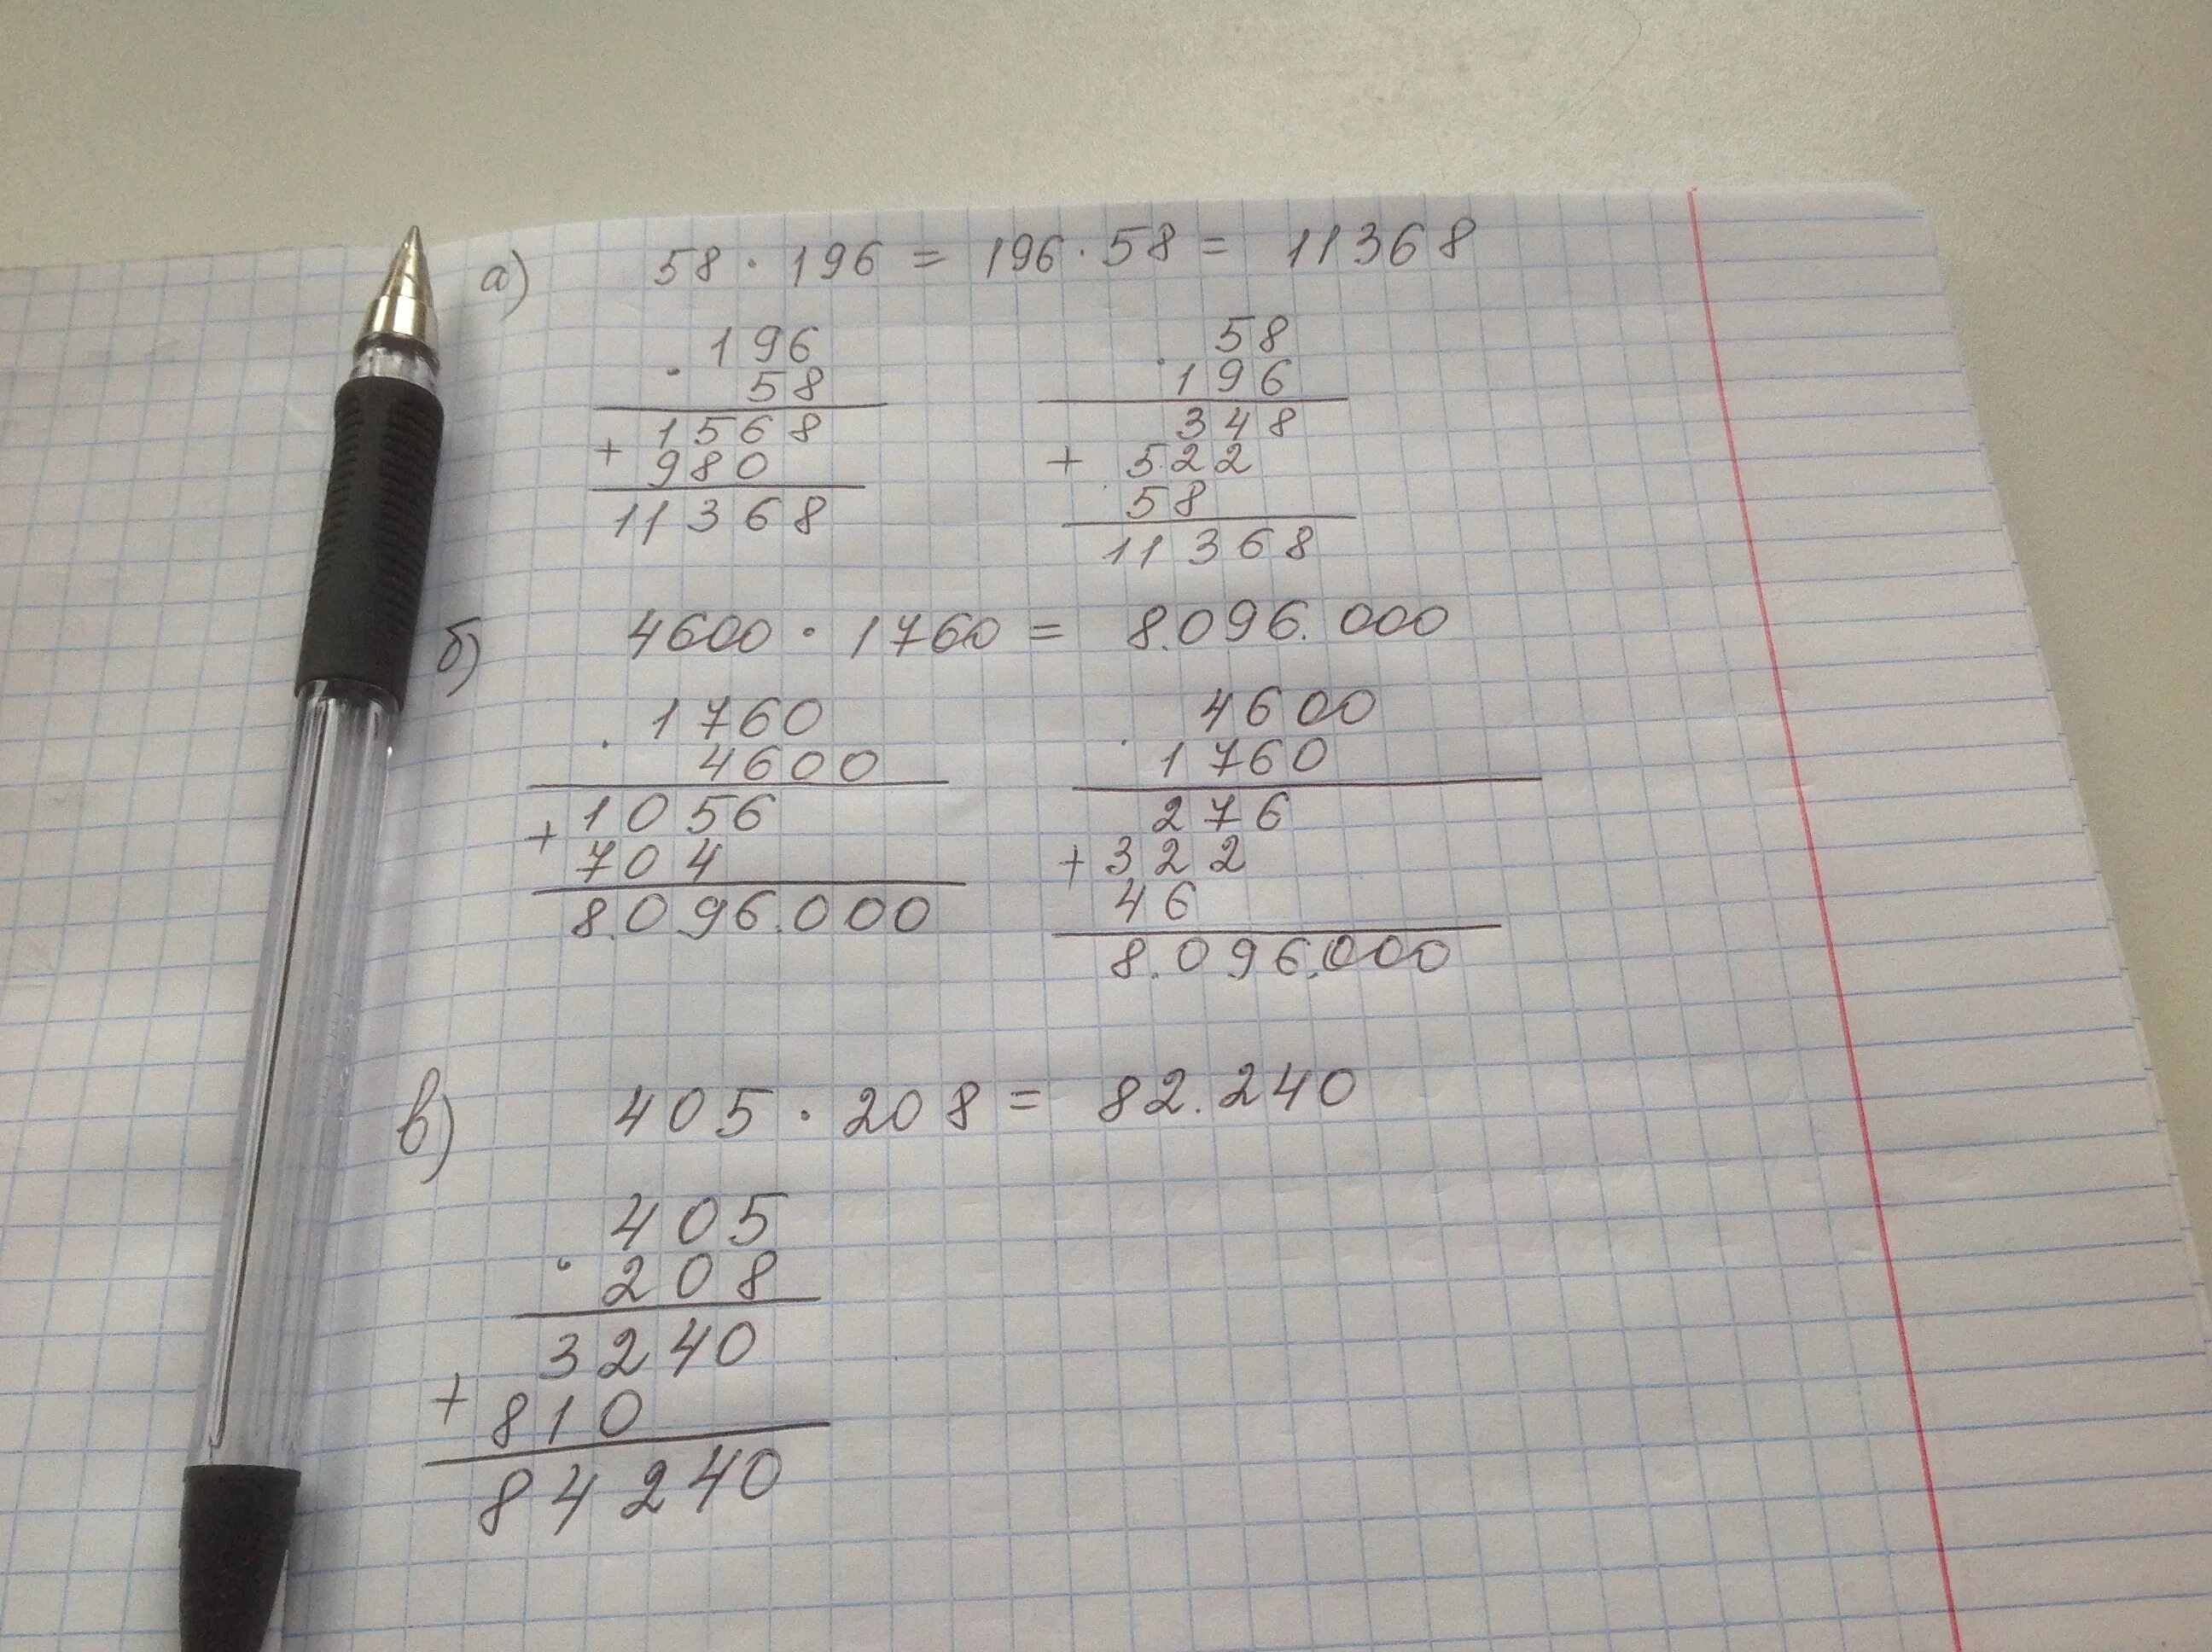 а) 58 · 196 = 196 · 58 = 11368
196
· 58
1568
+ 980
11368
58
· 196
348
+ 522
58
11368
б) 4600 · 1760 = 8.096.000
1760
· 4600
1056
+ 704
8.096.000
4600
· 1760
276
+ 322
46
8.096.000
в) 405 · 208 = 82.240
405
· 208
3240
+ 810
84240